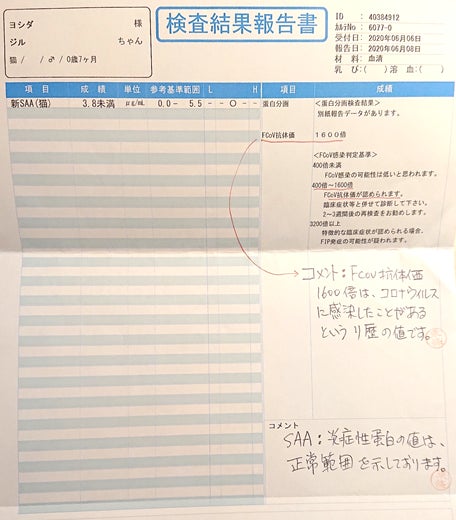 ヨシダ 様
ジル ちゃん
猫/ / /♂/0歳7ヶ月
検査結果報告書
ID : 40384912
カルテNo : 6077-0
受付日: 2020年06月06日
報告日: 2020年06月08日
材 料: 血清
乳 び:( ) 溶 血:( )
項 目 成 績 単位 参考基準範囲 L H 項目 成績
新SAA(猫) 3.8未満 μg/mL 0.0- 5.5 --○-- 蛋白分画 <蛋白分画検査結果>
別紙報告データがあります。
FCoV抗体価 1600倍
<FCoV感染判定基準>
400倍未満
FCoV感染の可能性は低いと思われます。
400倍~1600倍
FCoV抗体価が認められます。
臨床症状等と併せて診断して下さい。
2~3週間後の再検査をお勧めします。
3200倍以上
特徴的な臨床症状が認められる場合、
FIP発症の可能性が疑われます。
コメント:FCoV抗体価
1600倍は、コロナウィルス
に感染したことがある
というり歴の値です。
コメント
SAA:炎症性蛋白の値は、
正常範囲を示しております。